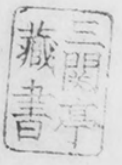 三関亭
藏書